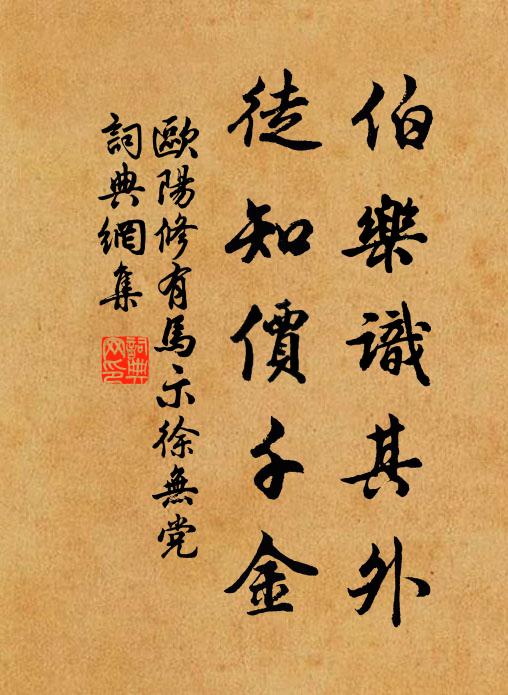 伯樂識其外
徒知價千金
歐陽修有馬示徐無党
詞典網集
詞典网印